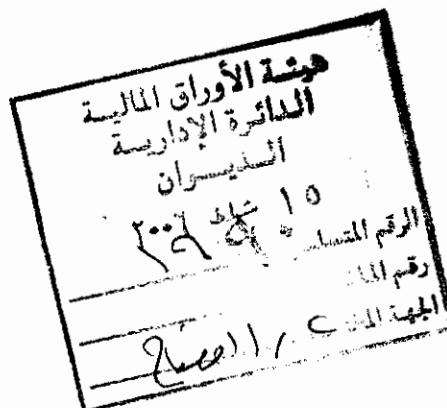 هيئة الأوراق المالية
الدائرة الإدارية
الديوان
١٥ شباط
الرقم المتسلسل
رقم الملف
الجهة المختصة الافصاح